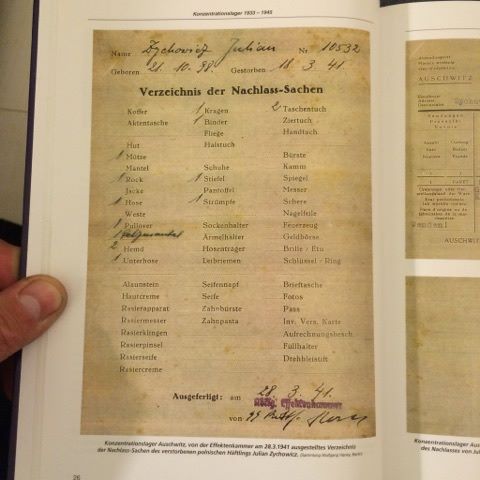 Konzentrationslager 1933 – 1945
Name Zychowicz Julian Nr 10532
Geboren 21. 10. 98. Gestorben 18. 3. 41.
Verzeichnis der Nachlass-Sachen
Koffer 1 Kragen 2 Taschentuch
Aktentasche 1 Binder Ziertuch
Fliege Handtasch.
Hut Halstuch
1 Mütze Bürste
Mantel Schuhe Kamm
1 Rock 1 Stiefel Spiegel
Jacke Pantoffel Messer
1 Hose 1 Strümpfe Schere
Weste Nagelfeile
1 Pullover Sockenhalter Feuerzeug
1 Ärmelhalter Geldbörse
2 Hemd Hosenträger Brille / Etu
1 Unterhose Leibriemen Schlüssel / Ring
Alaunstein Seifennapf Brieftasche
Hautcreme Seife Fotos
Rasierapparat Zahnbürste Pass
Rasiermesser Zahnpasta Inv. Vers. Karte
Rasierklingen Aufrechnungsbesch.
Rasierpinsel Füllhalter
Rasierseife Drehbleistift
Rasiercreme
Ausgefertigt: am 28. 3. 41.
Effektenkammer
von
Konzentrationslager Auschwitz, von der Effektenkammer am 28.3.1941 ausgestelltes Verzeichnis
der Nachlass-Sachen des verstorbenen polnischen Häftlings Julian Zychowicz.
26
AUSCHWITZ
AUSCHWITZ
Konzentrationslager Aus
des Nachlasses von Jul